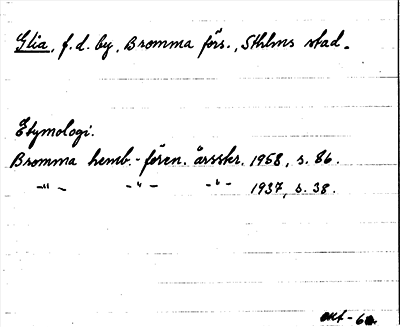 Glia, f.d. by, Bromma förs., Sthlms stad.
Etymologi.
Bromma hemb.-fören. årsskr. 1958, s. 86.
-"- -"- -"- 1937, s. 38.
okt-60